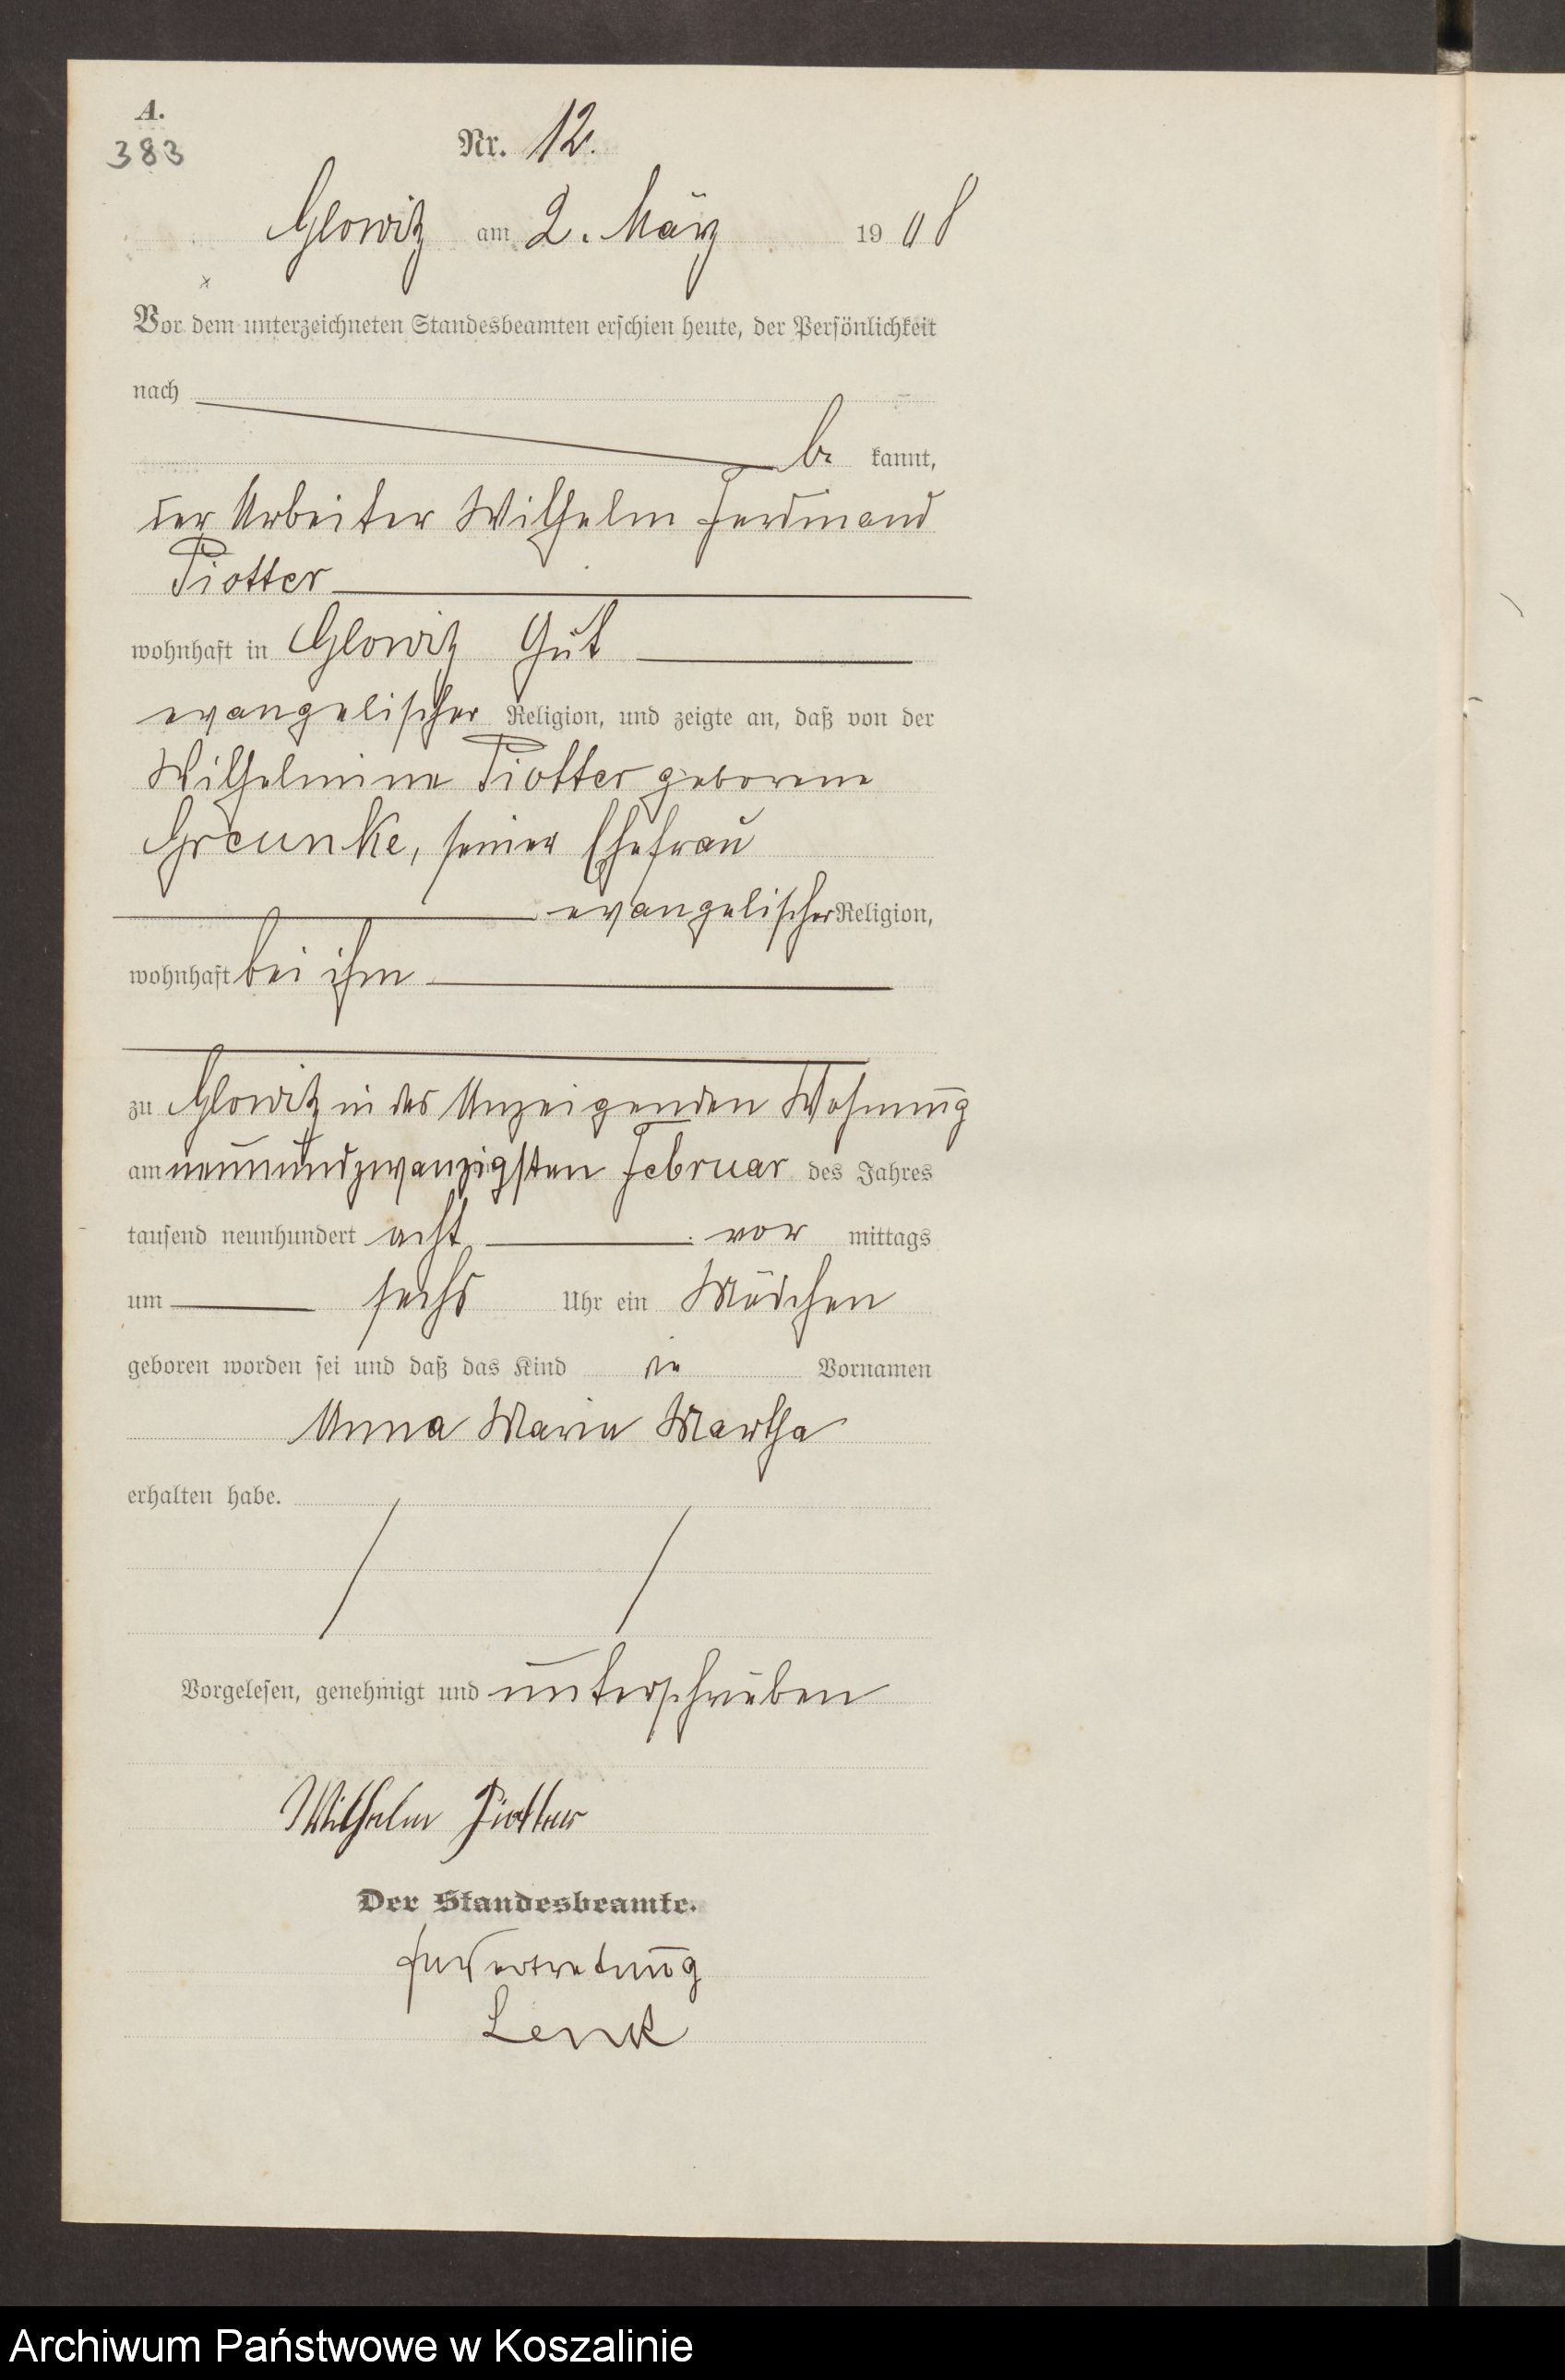 A.
383
Nr. 12.
Glowitz am 2. März 1908
Vor dem unterzeichneten Standesbeamten erschien heute, der Persönlichkeit
nach
be kannt,
der Arbeiter Wilhelm Ferdinand
Piotter
wohnhaft in Glowitz Gut
evangelischer Religion, und zeigte an, daß von der
Wilhelmine Piotter geborene
Greunke, seiner Ehefrau
evangelischer Religion,
wohnhaft bei ihm
zu Glowitz in des Anzeigenden Wohnung
am neunundzwanzigsten Februar des Jahres
tausend neunhundert acht vor mittags
um sechs Uhr ein Mädchen
geboren worden sei und daß das Kind die Vornamen
Anna Marie Martha
erhalten habe.
Vorgelesen, genehmigt und unterschrieben
Wilhelm Piotter
Der Standesbeamte.
In Vertretung
Lenk
Archiwum Państwowe w Koszalinie